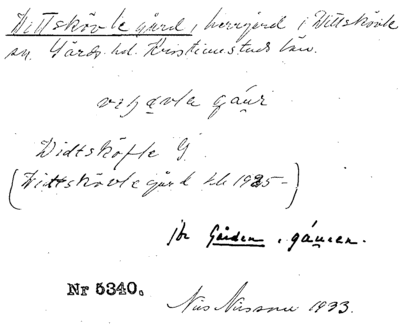 Vittskövle gård, herrgård i Vittskövle
sn. Gärds hd. Kristianstads län.
Widtsköfle G.
(Vittskövle gård tb 1925-)
jbr Gården, gáuen.
Nr 5340.
Nils Nilsson 1933.